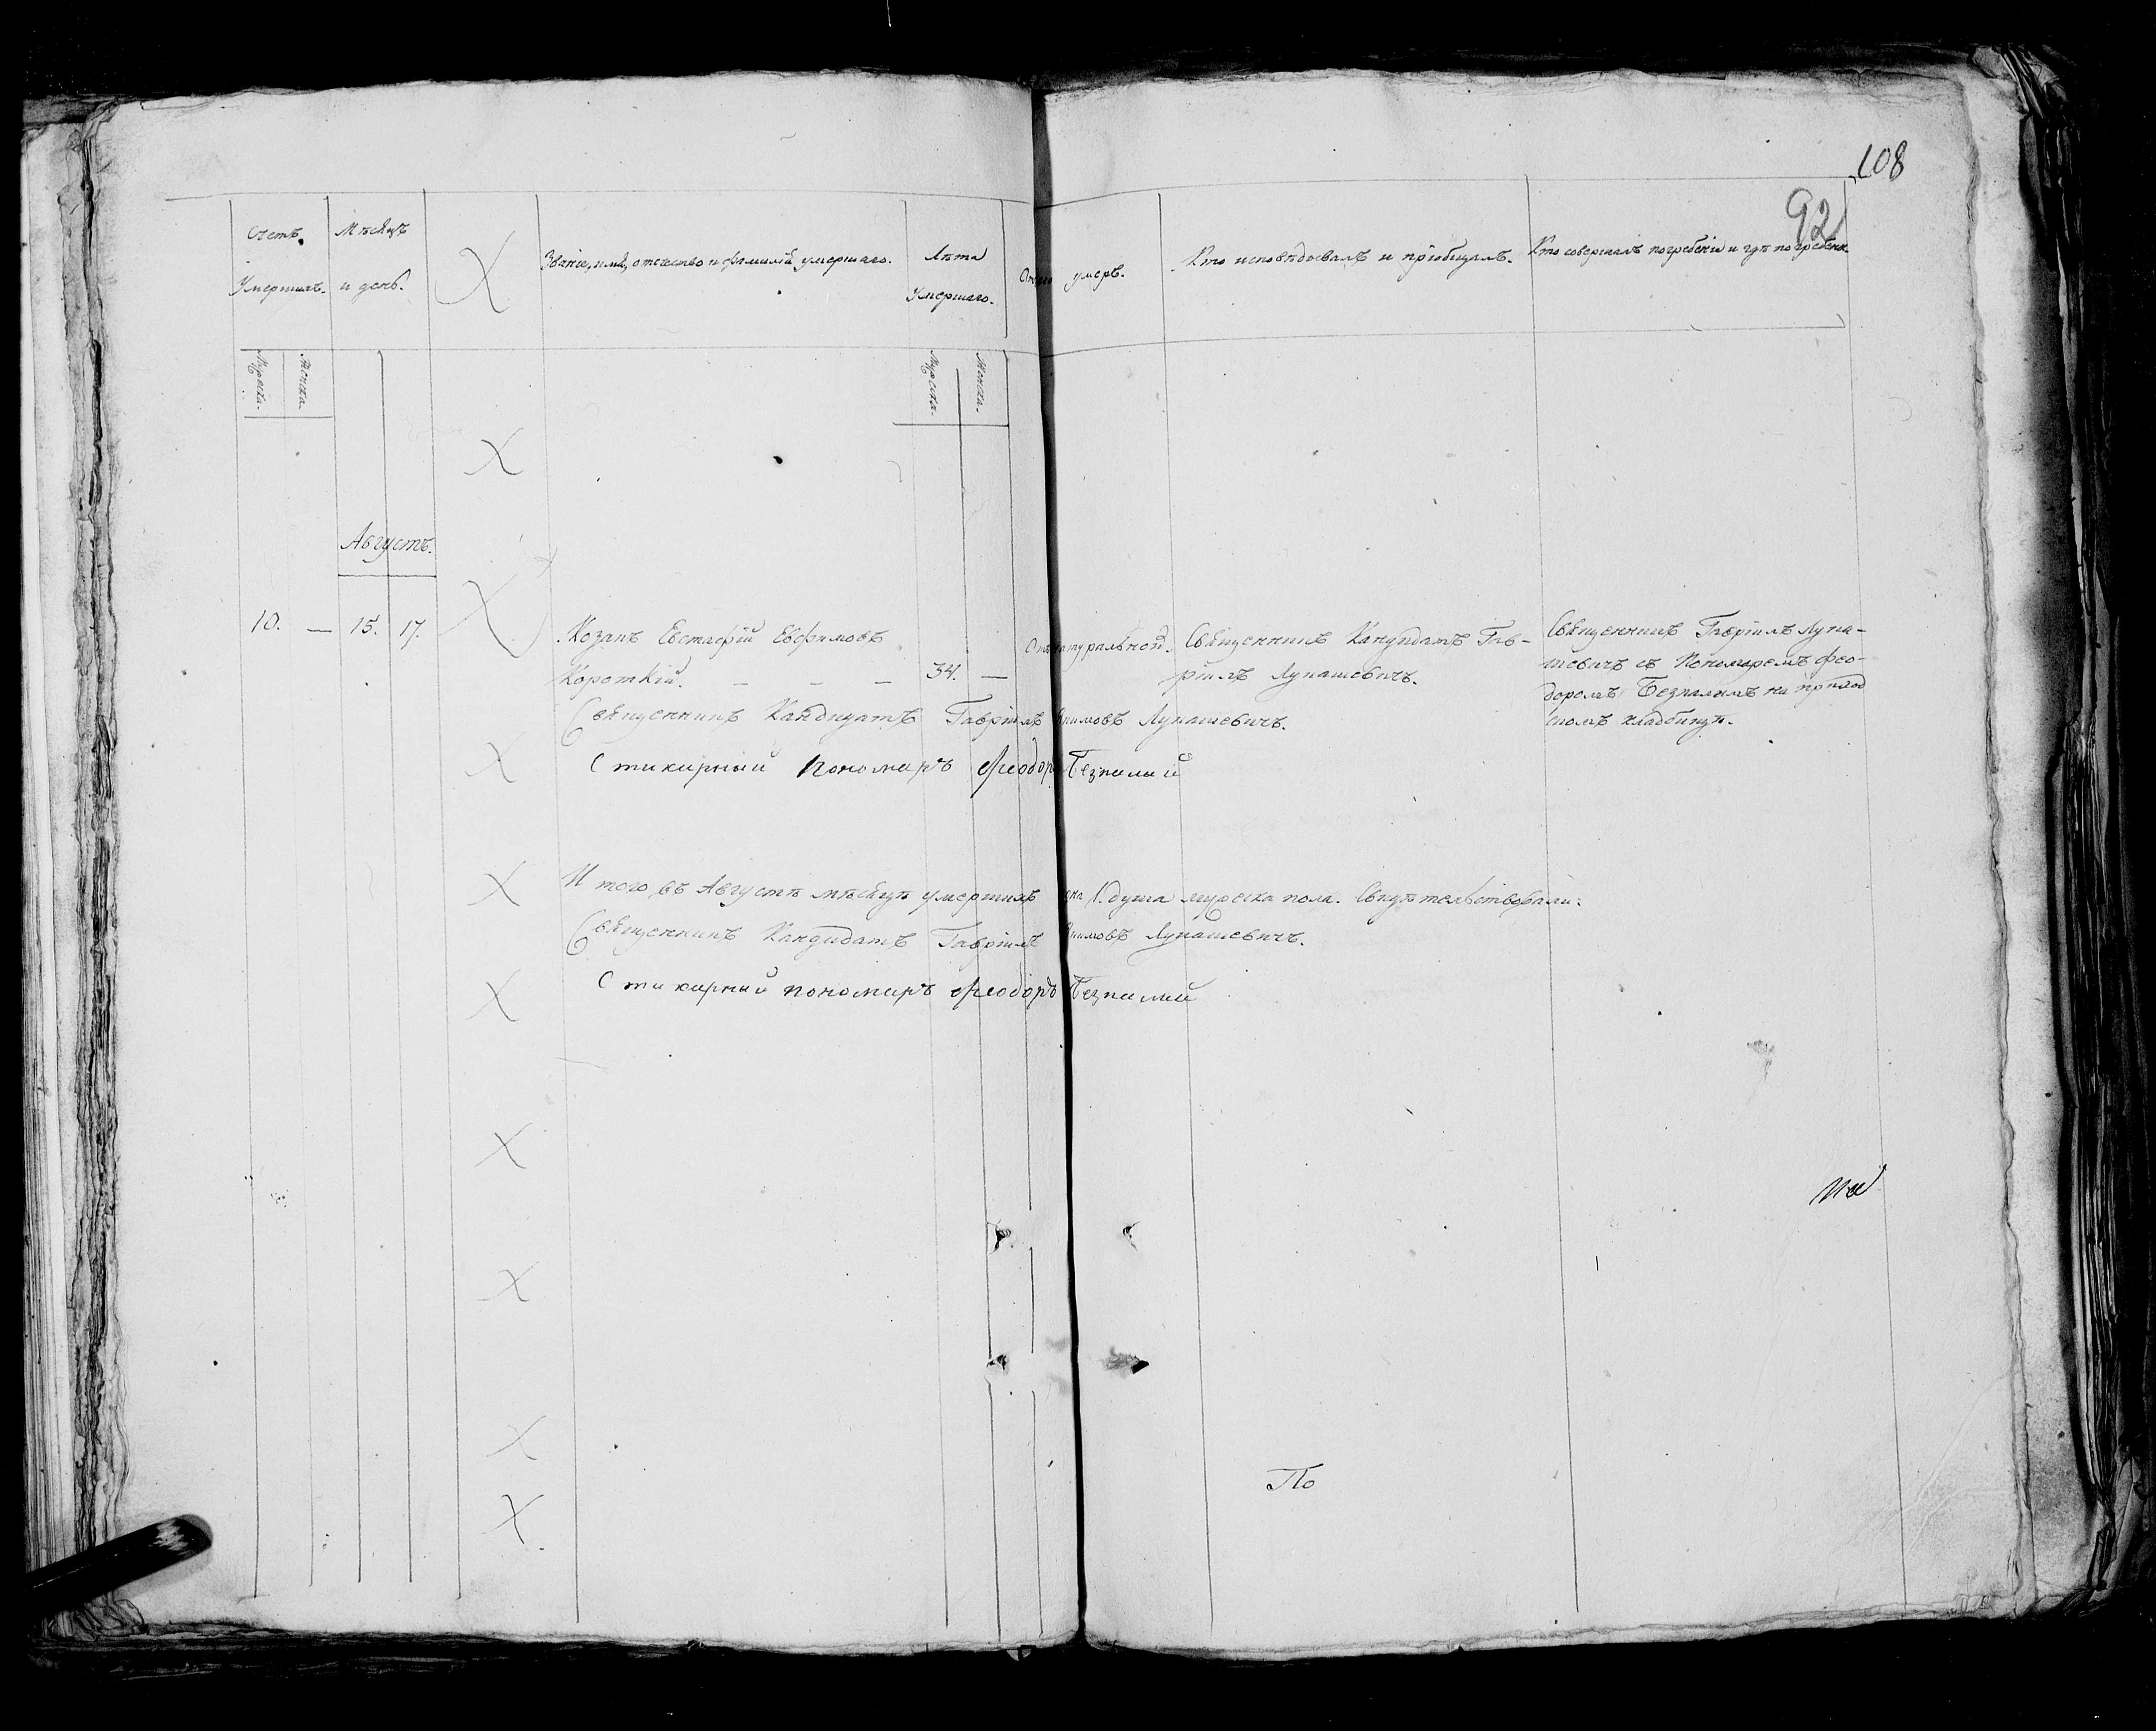 108
92
Счетъ Умершихъ.
Мѣсяцъ и день.
Званіе, имя, отечество и фамилія умершаго.
Лѣта Умершаго.
Отъ чего умеръ.
Кто исповѣдовалъ и пріобщалъ.
Кто совершалъ погребеніе и гдѣ погребенъ
Мужеска.
Женска.
Мужеска.
Женска.
Августъ.
10. — 15. 17. Козакъ Евстафій Евфимовъ
Короткій. — — — 34. —
Отъ натуральной.
Священникъ Кандидатъ Гав-
ріилъ Лукашевичъ.
Священникъ Гавріилъ Лука-
шевичъ съ Пономаремъ Фео-
доромъ Безпалимъ на приход
скомъ кладбищѣ.
Священникъ Кандидатъ Гавріилъ Лукашевичъ.
Стихарный Пономаръ Феодоръ Безпалий
И того въ Августѣ мѣсяцѣ умершихъ 1. душа мужеска пола. Свидѣтельствовали:
Священникъ Кандидатъ Гавріилъ Лукашевичъ.
Стихарный пономаръ Феодоръ Безпалий
По